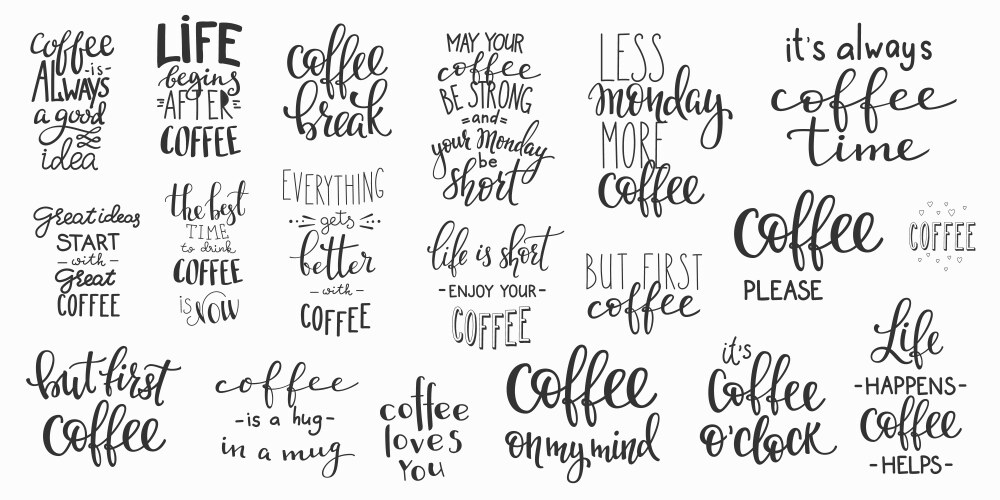 coffee
-is-
ALWAYS
a good
idea
LiFE
begins
=AFTER=
COFFEE
coffee
break
MAY YOUR
coffee
BE STRONG
=and=
your Monday
be
short
LESS
monday
MORE
coffee
it's always
coffee
time
Great ideas
START
-with-
Great
COFFEE
the best
TIME
to drink
COFFEE
is NOW
EVERYTHING
gets
better
-with-
COFFEE
life is short
-ENJOY YOUR-
COFFEE
BUT FIRST
coffee
coffee
PLEASE
COFFEE
but first
coffee
coffee
-is a hug-
in a mug
coffee
loves
you
coffee
on my mind
it's
Coffee
o'clock
Life
-HAPPENS-
Coffee
-HELPS-